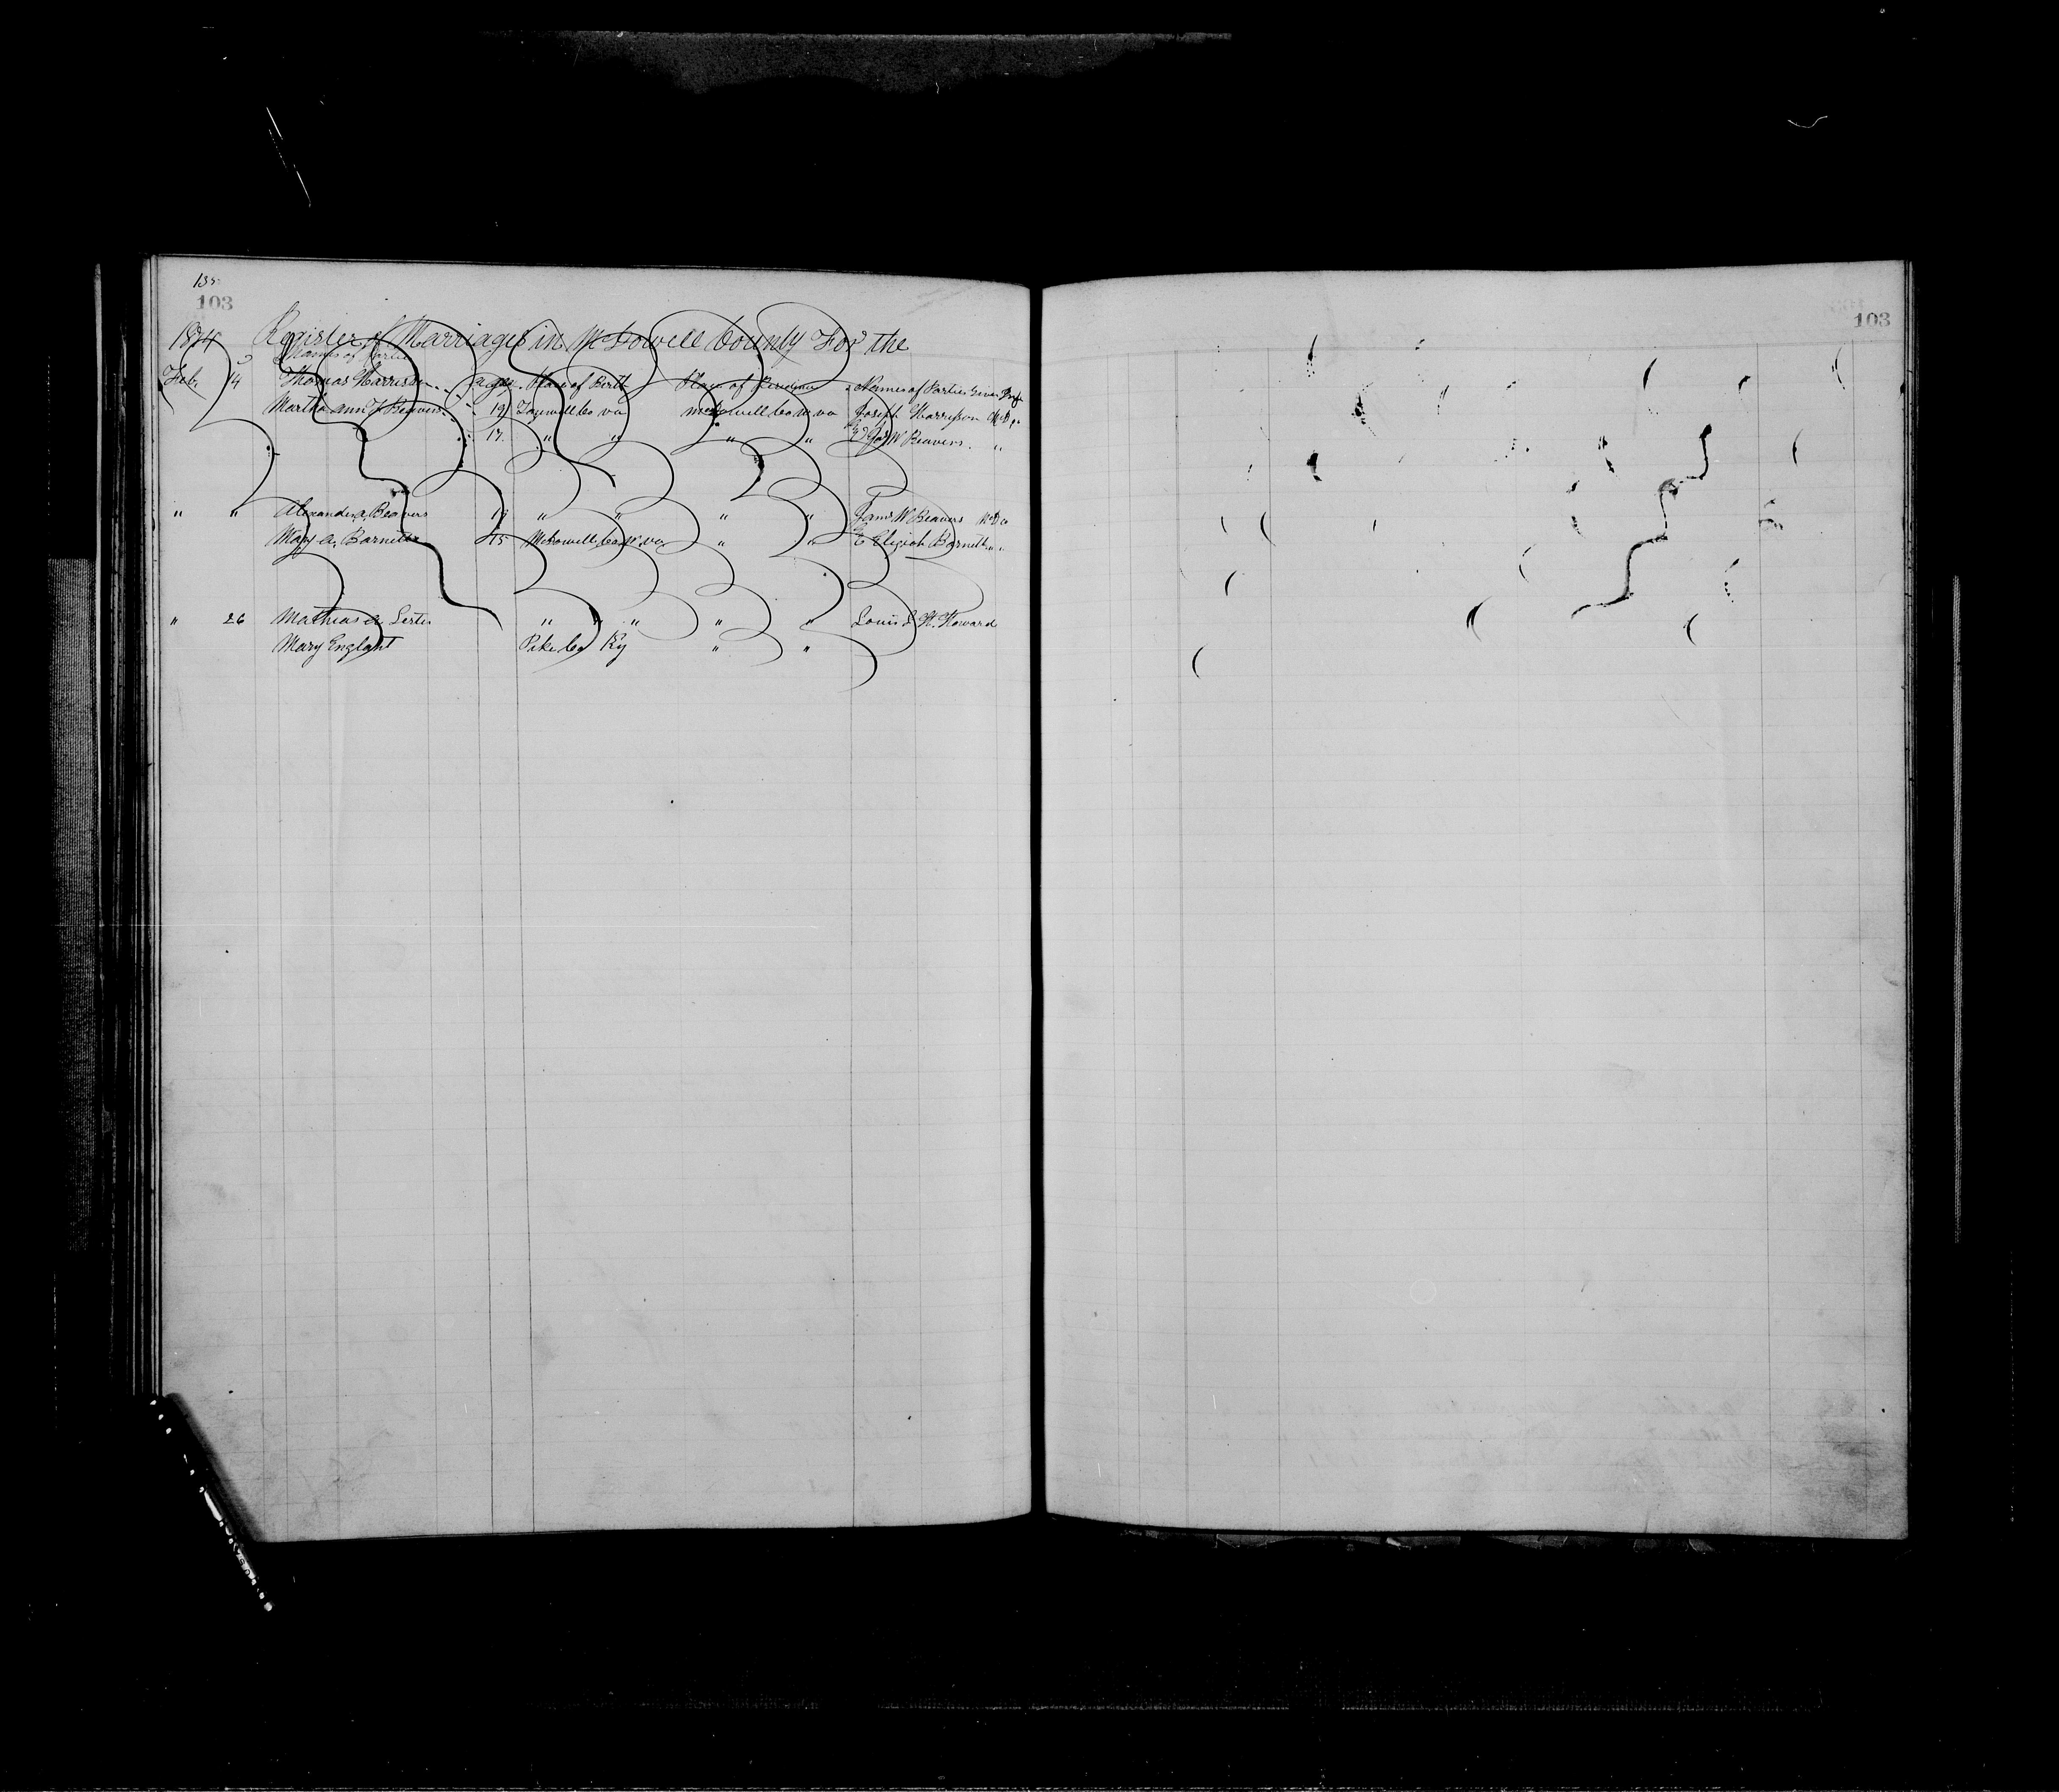 103
103
1874 Register of Marriages in McDowell County For the
Names of Parties
Feb. 14 Thomas Harrison ages. Place of Birth Place of Residence Names of Parties Given
Martha Ann J Beavers 19 Tazwell Co va McDowell Co W va Joseph Harrison
17. " " " " Jas W Beavers. "
" " Alexander Beavers 19 " " " " James W Beavers
Mary A. Barnett 15 McDowell Co W va " " & Eligiah Barnett " "
" 26 Mathias Lester " " " " " Louis & H. Howard
Mary England Pike Co Ky " "